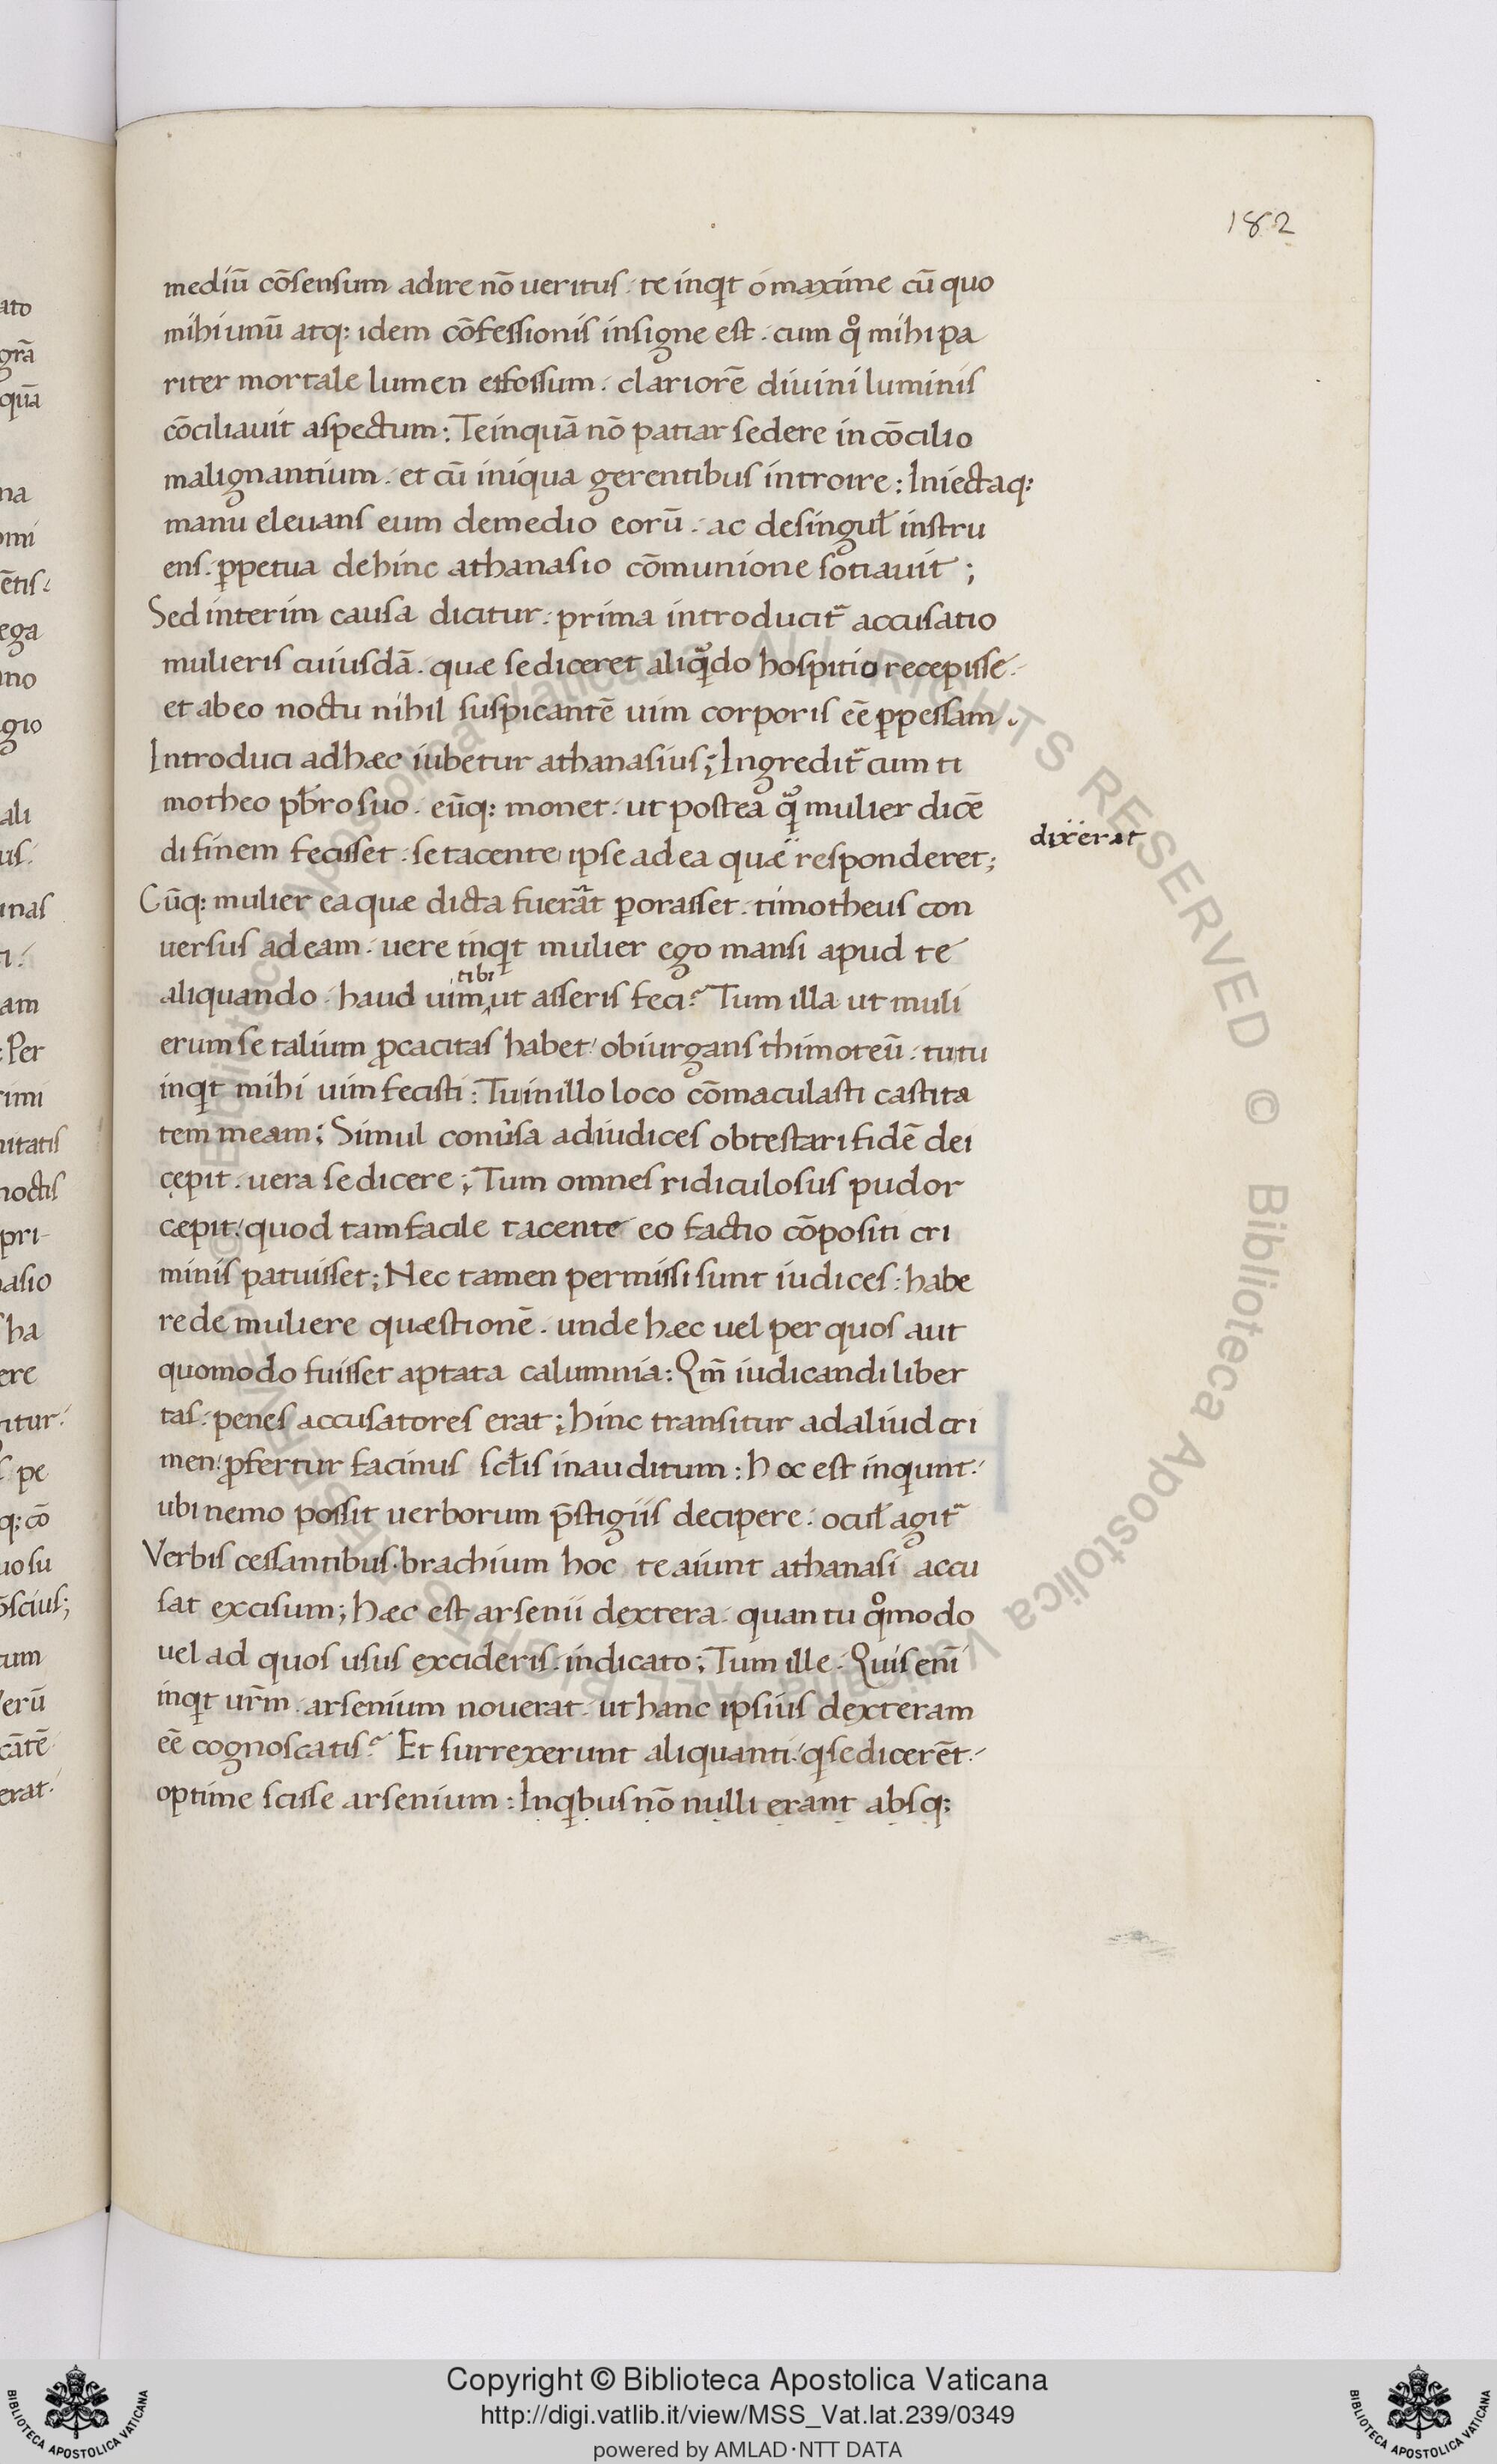 182
mediū cōsensum adire nō ueritus · te inqit o maxime cū quo
mihi unū atq: idem cōfessionis insigne est · cum qͦ mihi pa
riter mortale lumen effossum · clariorē diuini luminis
cōciliauit aspectum : Te inquā nō patiar sedere in cōcilio
malignantium · et cū iniqua gerentibus introire : Iniectaq:
manu eleuans eum de medio eorū · ac de singul̄ instru
ens · ꝑpetua dehinc athanasio cōmunione sotiauit ;
Sed interim causa dicitur · prima introducit᷑ accusatio
mulieris cuiusdā · quæ se diceret aliqᷓdo hospitio recepisse ·
et ab eo noctu nihil suspicantē uim corporis eē ꝑpessam ·
Introduci ad hæc iubetur athanasius ; Ingredit᷑ cum ti
motheo pb̄ro suo · eūq: monet · ut postea qᷓ mulier dicē
di finem fecisset · se tacente ipse ad ea quæ̈ responderet ;
diẍerat
Cūq: mulier ea quæ dicta fuerāt ꝑorasset · timotheus con
uersus ad eam · uere inqit mulier ego mansi apud te
tibi
aliquando · haud uim ut asseris feci ? Tum illa ut muli
erum se talium ꝓcacitas habet · obiurgans thimoteū · tu tu
inqit mihi uim fecisti : Tu in illo loco cōmaculasti castita
tem meam ; Simul conuͥsa ad iudices obtestari fidē dei
cępit · uera se dicere ; Tum omnes ridiculosus pudor
cæpit · quod tam facile tacente eo factio cōpositi cri
minis patuisset ; Nec tamen permissi sunt iudices · habe
re de muliere quæstionē · unde hæc uel per quos aut
quomodo fuisset aptata calumnia : Qm̄ iudicandi liber
tas · penes accusatores erat ; hinc transitur ad aliud cri
men · ꝓfertur facinus scl̄is inauditum : hoc est inqiunt ·
ubi nemo possit uerborum p̄stigiis decipere · ocul̄ agit᷑
Verbis cessantibus · brachium hoc te aiunt athanasi accu
sat excisum ; hæc est arsenii dextera · quan tu qͦmodo
uel ad quos usus excideris · indicato ; Tum ille · Quis enī
inqit ur̄m · arsenium nouerat · ut hanc ipsius dexteram
eē cognoscatis ? Et surrexerunt aliquanti · q se dicerēt ·
optime scisse arsenium : In qibus nō nulli erant absq:
Copyright © Biblioteca Apostolica Vaticana
http://digi.vatlib.it/view/MSS_Vat.lat.239/0349
powered by AMLAD·NTT DATA